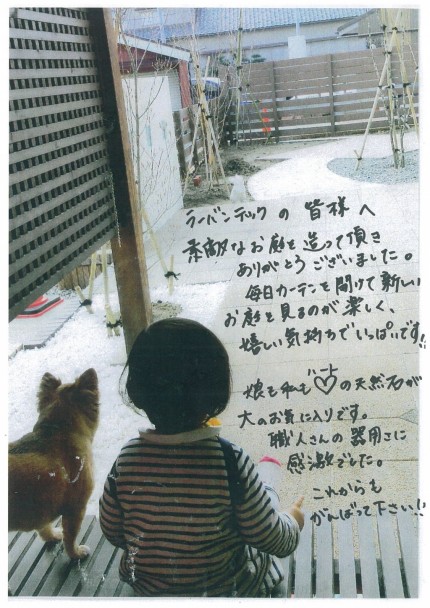 ラ・バンテックの皆様へ
素敵なお庭を造って頂き
ありがとうございました。
毎日カーテンを開けて新しい
お庭を見るのが楽しく、
嬉しい気持ちでいっぱいです!!
娘も私もハート♡の天然石が
大のお気に入りです。
職人さんの器用さに
感激でした。
これからも
がんばって下さい!!